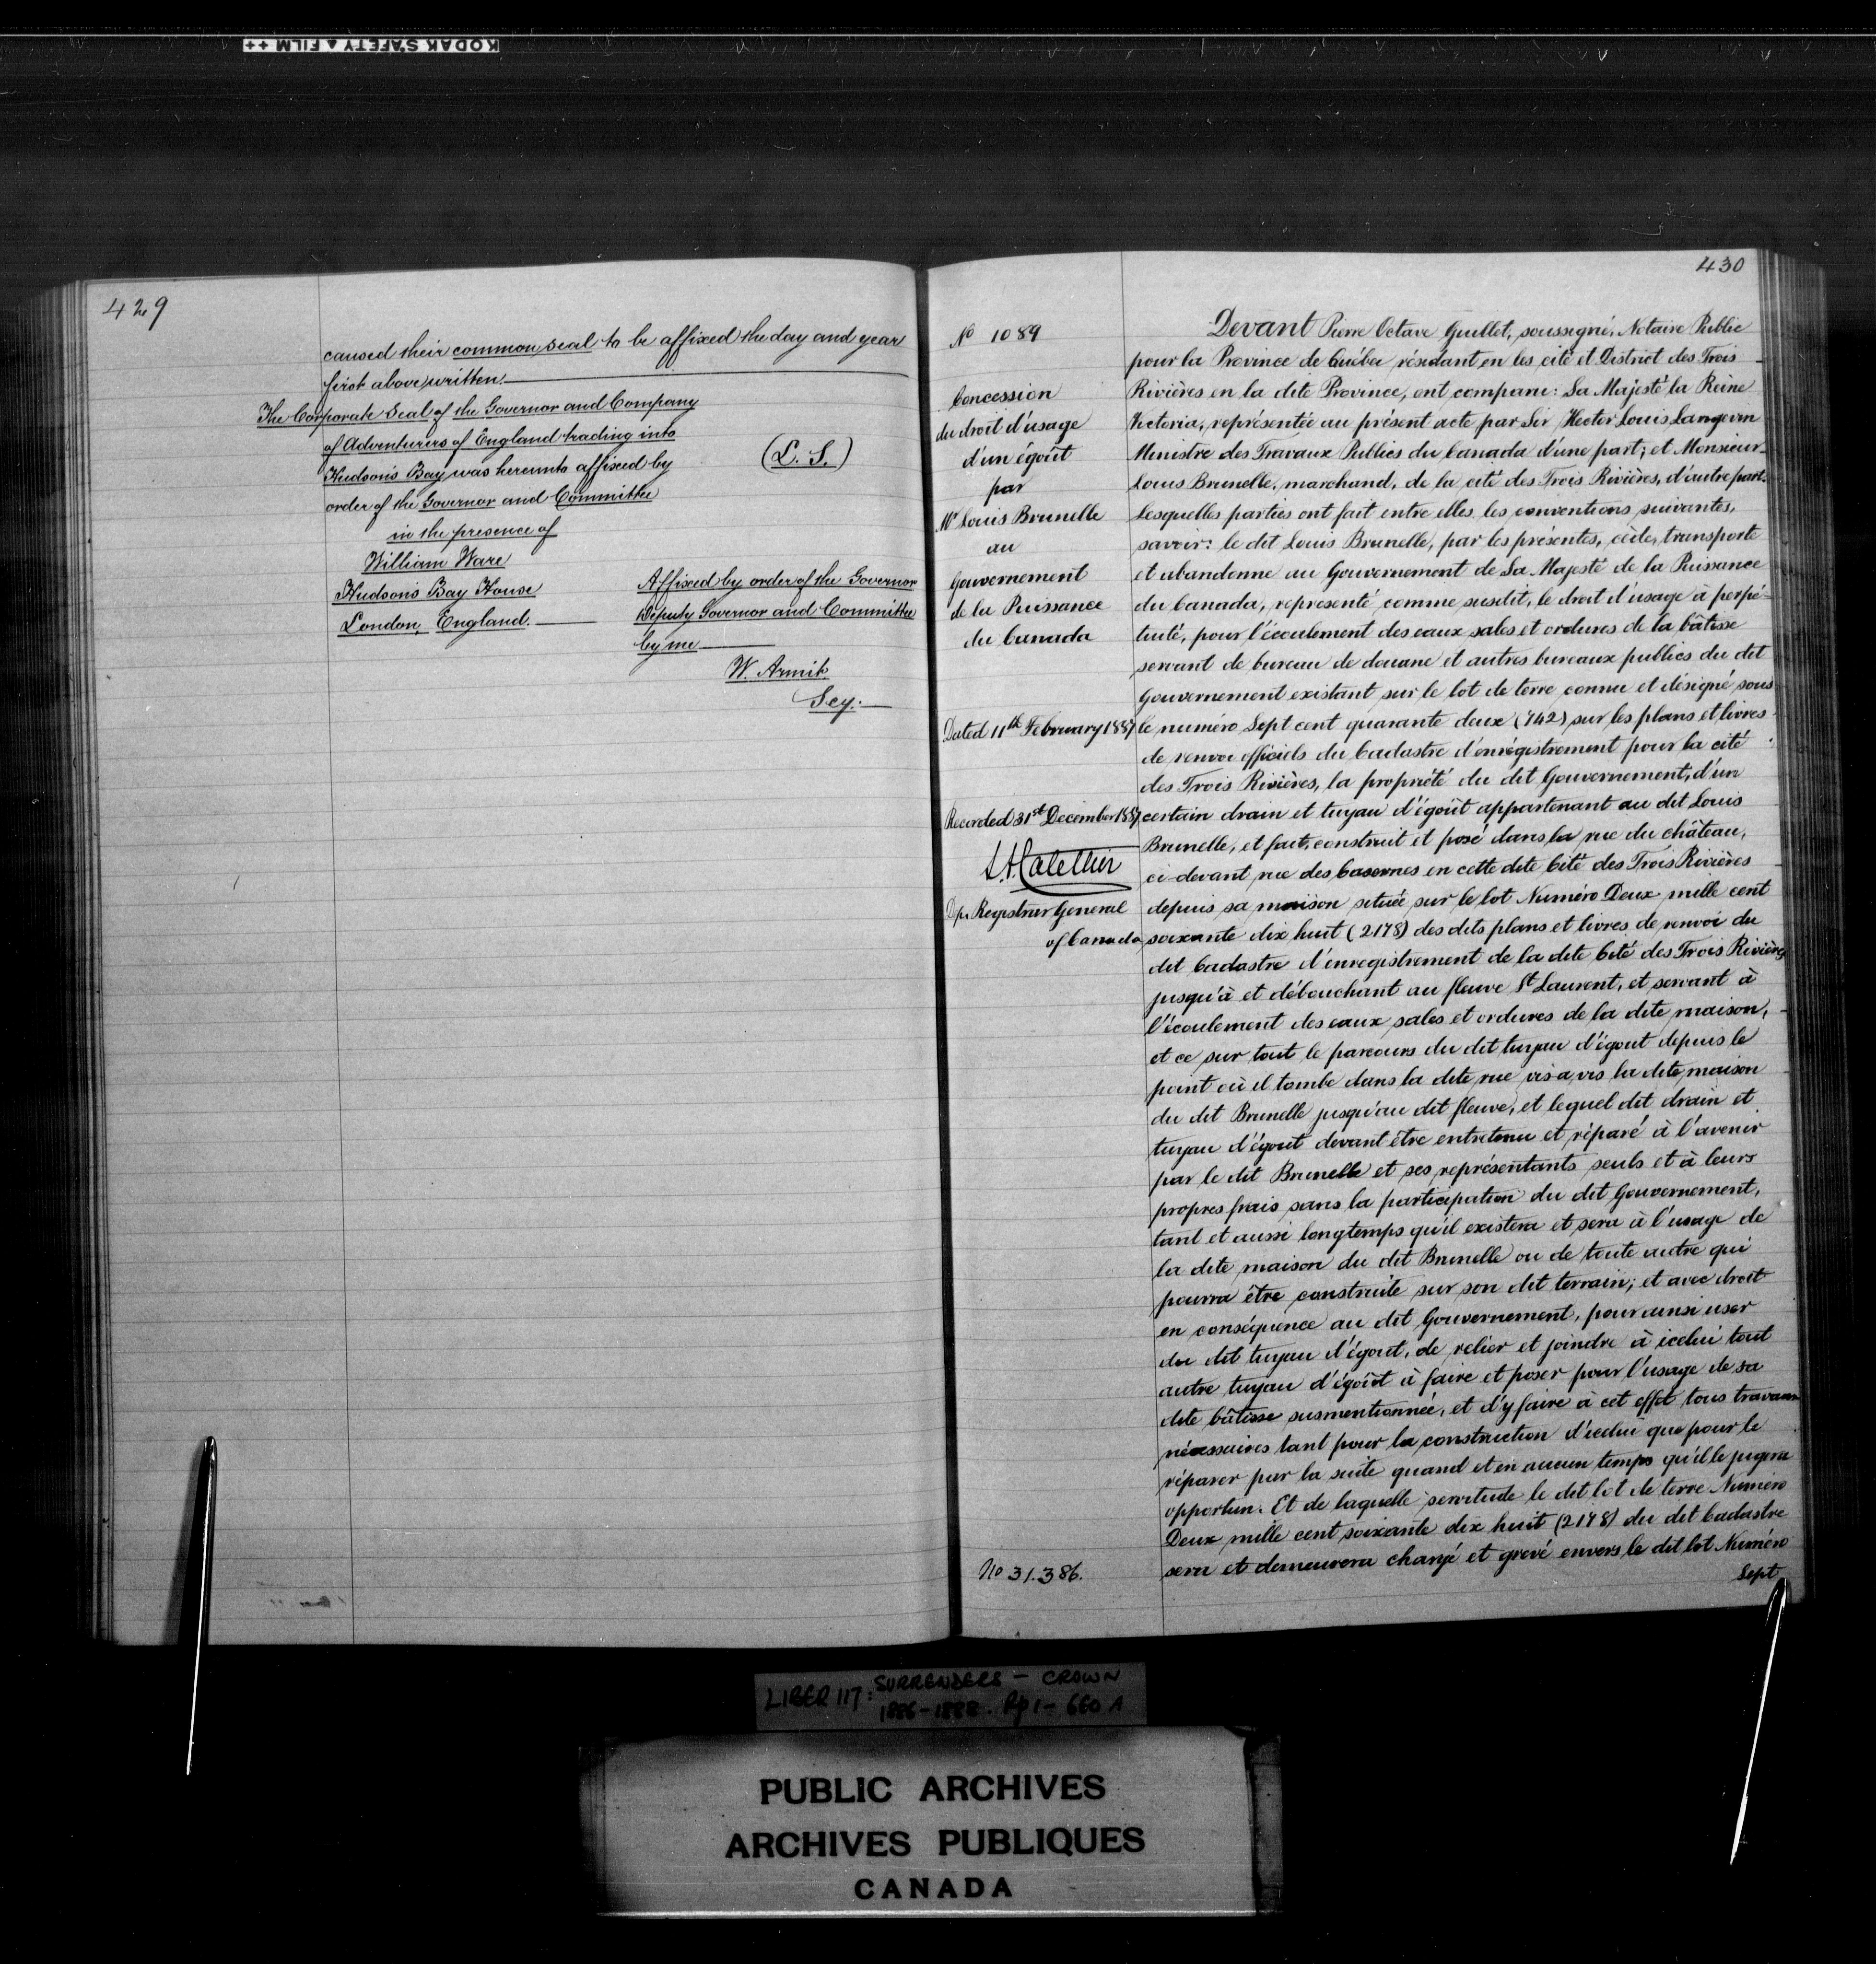 KODAK SAFETY FILM ++
429
caused their common seal to be affixed the day and year
first above written.
The Corporate Seal of the Governor and Company
of Adventurers of England trading into
Hudson's Bay was hereunto affixed by
order of the Governor and Committee
(L. S.)
in the presence of
William Ware
Hudson's Bay House
London, England.
Affixed by order of the Governor
Deputy Governor and Committee
by me
W. Armit
Secy.
430
No 1089
Concession
du droit d'usage
d'un égoût
par
Mr Louis Brunelle
au
Gouvernement
de la Puissance
du Canada
Dated 11th February 1887
Recorded 31st December 1887
Dp. Registrar General
of Canada
No 31.386.
Devant Pierre Octave Guillet, soussigné, Notaire Public
pour la Province de Québec résidant en les cité et District des Trois
Rivières en la dite Province, ont comparu: Sa Majesté la Reine
Victoria, représentée au présent acte par Sir Hector Louis Langevin
Ministre des Travaux Publics du Canada d'une part; et Monsieur
Louis Brunelle, marchand, de la cité des Trois Rivières, d'autre part.
Lesquelles parties ont fait entre elles les conventions suivantes,
savoir: le dit Louis Brunelle, par les présentes, cède, transporte
et abandonne au Gouvernement de Sa Majesté de la Puissance
du Canada, représenté comme susdit, le droit d'usage à perpé-
tuité, pour l'écoulement des eaux sales et ordures de la bâtisse
servant de bureau de douane et autres bureaux publics du dit
Gouvernement existant sur le lot de terre connu et désigné sous
le numéro Sept cent quarante deux (742) sur les plans et livres
de renvoi officiels du Cadastre d'enrégistrement pour la cité
des Trois Rivières, la propriété du dit Gouvernement, d'un
certain drain et tuyau d'égoût appartenant au dit Louis
Brunelle, et fait, construit et posé dans la rue du château,
ci-devant rue des Casernes en cette dite Cité des Trois Rivières
depuis sa maison située sur le lot Numéro Deux mille cent
soixante dix huit (2178) des dits plans et livres de renvoi du
dit Cadastre d'enregistrement de la dite Cité des Trois Rivières
jusqu'à et débouchant au fleuve St Laurent, et servant à
l'écoulement des eaux sales et ordures de la dite maison,
et ce sur tout le parcours du dit tuyau d'égout depuis le
point où il tombe dans la dite rue vis-a vis la dite maison
du dit Brunelle jusqu'au dit fleuve, et lequel dit drain et
tuyau d'égout devant être entretenu et réparé à l'avenir
par le dit Brunelle et ses représentants seuls et à leurs
propres frais sans la participation du dit Gouvernement,
tant et aussi longtemps qu'il existera et sera à l'usage de
la dite maison du dit Brunelle ou de toute autre qui
pourra être construite sur son dit terrain; et avec droit
en conséquence au dit Gouvernement, pour ainsi user
du dit tuyau d'égout, de relier et joindre à icelui tout
autre tuyau d'égoût à faire et poser pour l'usage de sa
dite bâtisse susmentionnée, et d'y faire à cet effet tous travaux
nécessaires tant pour la construction d'icelui que pour le
réparer par la suite quand et en aucun temps qu'il le jugera
opportun. Et de laquelle servitude le dit lot de terre Numéro
Deux mille cent soixante dix huit (2178) du dit Cadastre
sera et demeurera chargé et grevé envers le dit lot Numéro
Sept
LIBER 117: SURRENDERS - CROWN
1886-1888. Pp 1- 660 A
PUBLIC ARCHIVES
ARCHIVES PUBLIQUES
CANADA